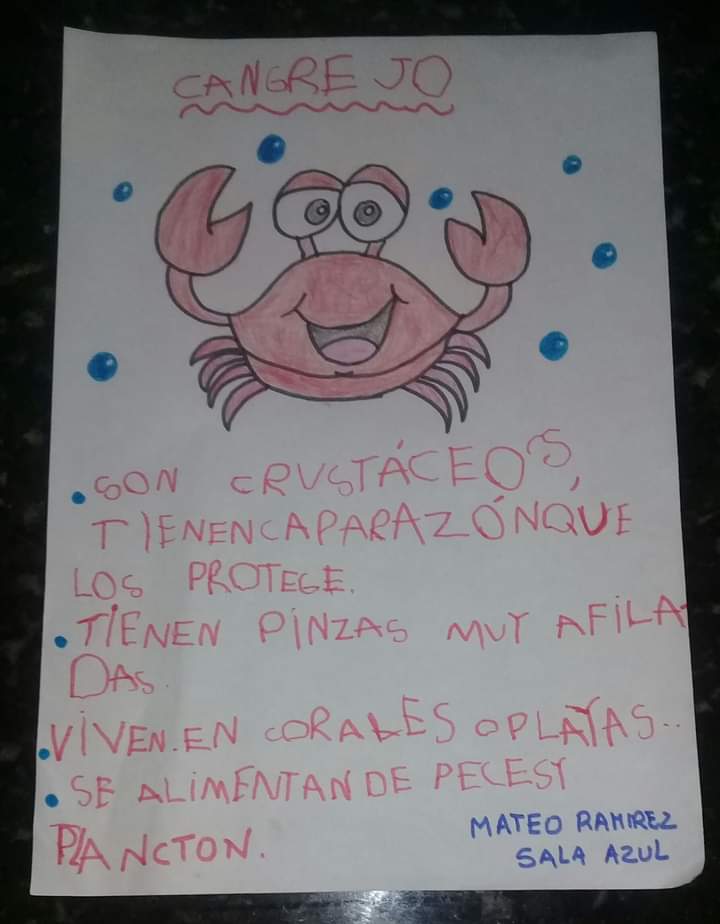 CANGREJO
• SON CRUSTÁCEOS,
TIENEN CAPARAZÓN QUE
LOS PROTEGE.
• TIENEN PINZAS MUY AFILA-
DAS.
• VIVEN.EN CORALES O PLAYAS..
• SE ALIMENTAN DE PECES Y
PLANCTON.
MATEO RAMIREZ
SALA AZUL